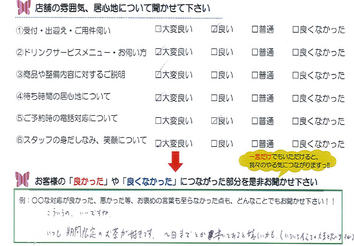 店舗の雰囲気、居心地について聞かせて下さい
①受付・出迎え・ご用件伺い □大変良い ☑良い □普通 □良くなかった
②ドリンクサービスメニュー・お伺い方 ☑大変良い □良い □普通 □良くなかった
③商品や整備内容に対するご説明 ☑大変良い □良い □普通 □良くなかった
④待ち時間の居心地について ☑大変良い □良い □普通 □良くなかった
⑤ご予約時の電話対応について □大変良い ☑良い □普通 □良くなかった
⑥スタッフの身だしなみ、笑顔について ☑大変良い □良い □普通 □良くなかった
一言だけでもいただけると、
我々のやる気につながりますっ!!
お客様の「良かった」や「良くなかった」につながった部分を是非お聞かせ下さい!!
例:〇〇な対応が良かった、悪かった等、お褒めの言葉も至らなかった点も、どんなことでもお聞かせ下さい!!
いつも 期間限定のお茶が好きです。